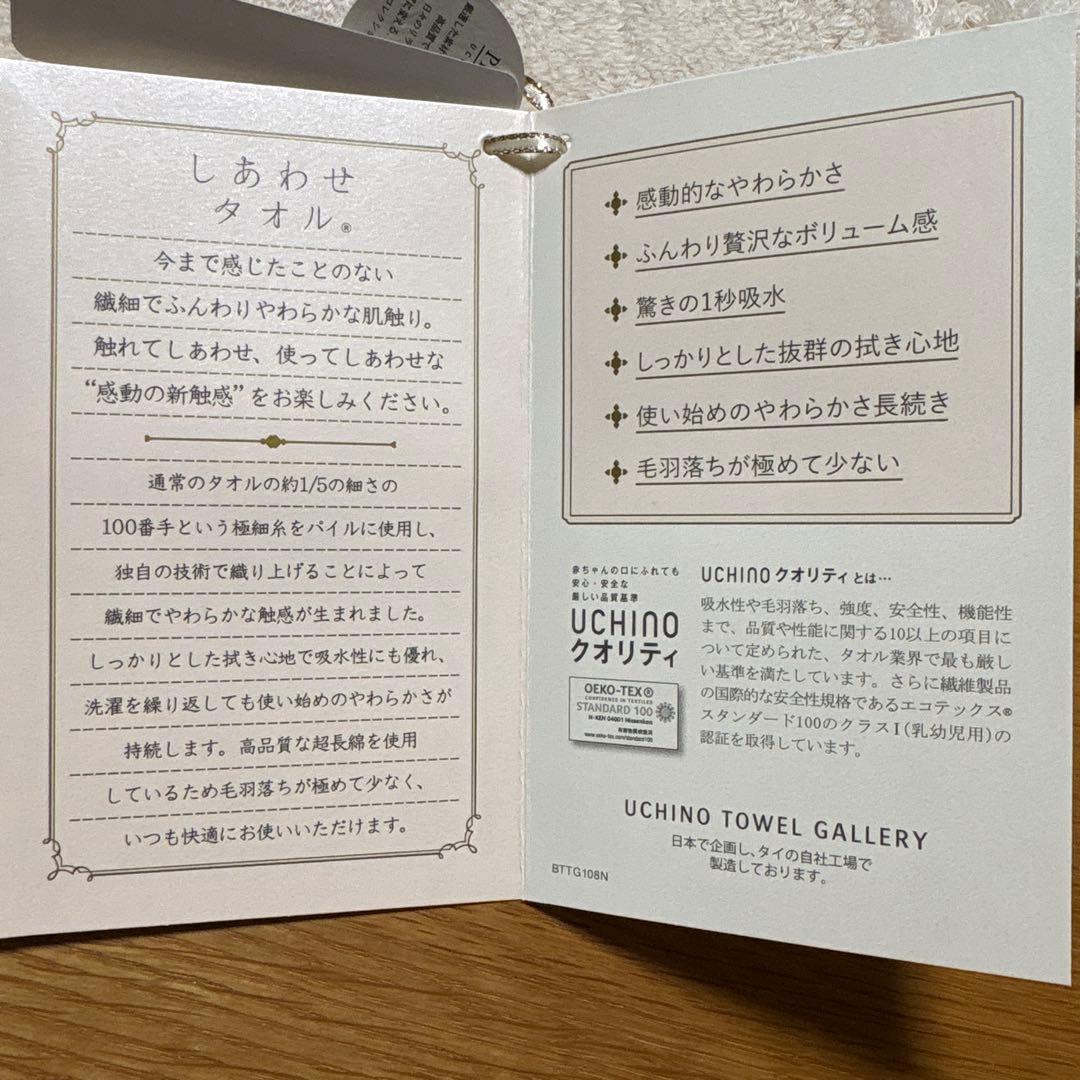 しあわせ
タオル®
今まで感じたことのない
繊細でふんわりやわらかな肌触り。
触れてしあわせ、使ってしあわせな
“感動の新触感”をお楽しみください。
通常のタオルの約1/5の細さの
100番手という極細糸をパイルに使用し、
独自の技術で織り上げることによって
繊細でやわらかな触感が生まれました。
しっかりとした拭き心地で吸水性にも優れ、
洗濯を繰り返しても使い始めのやわらかさが
持続します。高品質な超長綿を使用
しているため毛羽落ちが極めて少なく、
いつも快適にお使いいただけます。
感動的なやわらかさ
ふんわり贅沢なボリューム感
驚きの1秒吸水
しっかりとした抜群の拭き心地
使い始めのやわらかさ長続き
毛羽落ちが極めて少ない
赤ちゃんの口にふれても
安心・安全な
厳しい品質基準
UCHINO
クオリティ
OEKO-TEX®
CONFIDENCE IN TEXTILES
STANDARD 100
N-KEN 04001 Nissenken
有害物質検査済
www.oeko-tex.com/standard100
UCHINO クオリティ とは…
吸水性や毛羽落ち、強度、安全性、機能性
まで、品質や性能に関する10以上の項目に
ついて定められた、タオル業界で最も厳し
い基準を満たしています。さらに繊維製品
の国際的な安全性規格であるエコテックス®
スタンダード100のクラスⅠ(乳幼児用)の
認証を取得しています。
UCHINO TOWEL GALLERY
日本で企画し、タイの自社工場で
製造しております。
BTTG108N